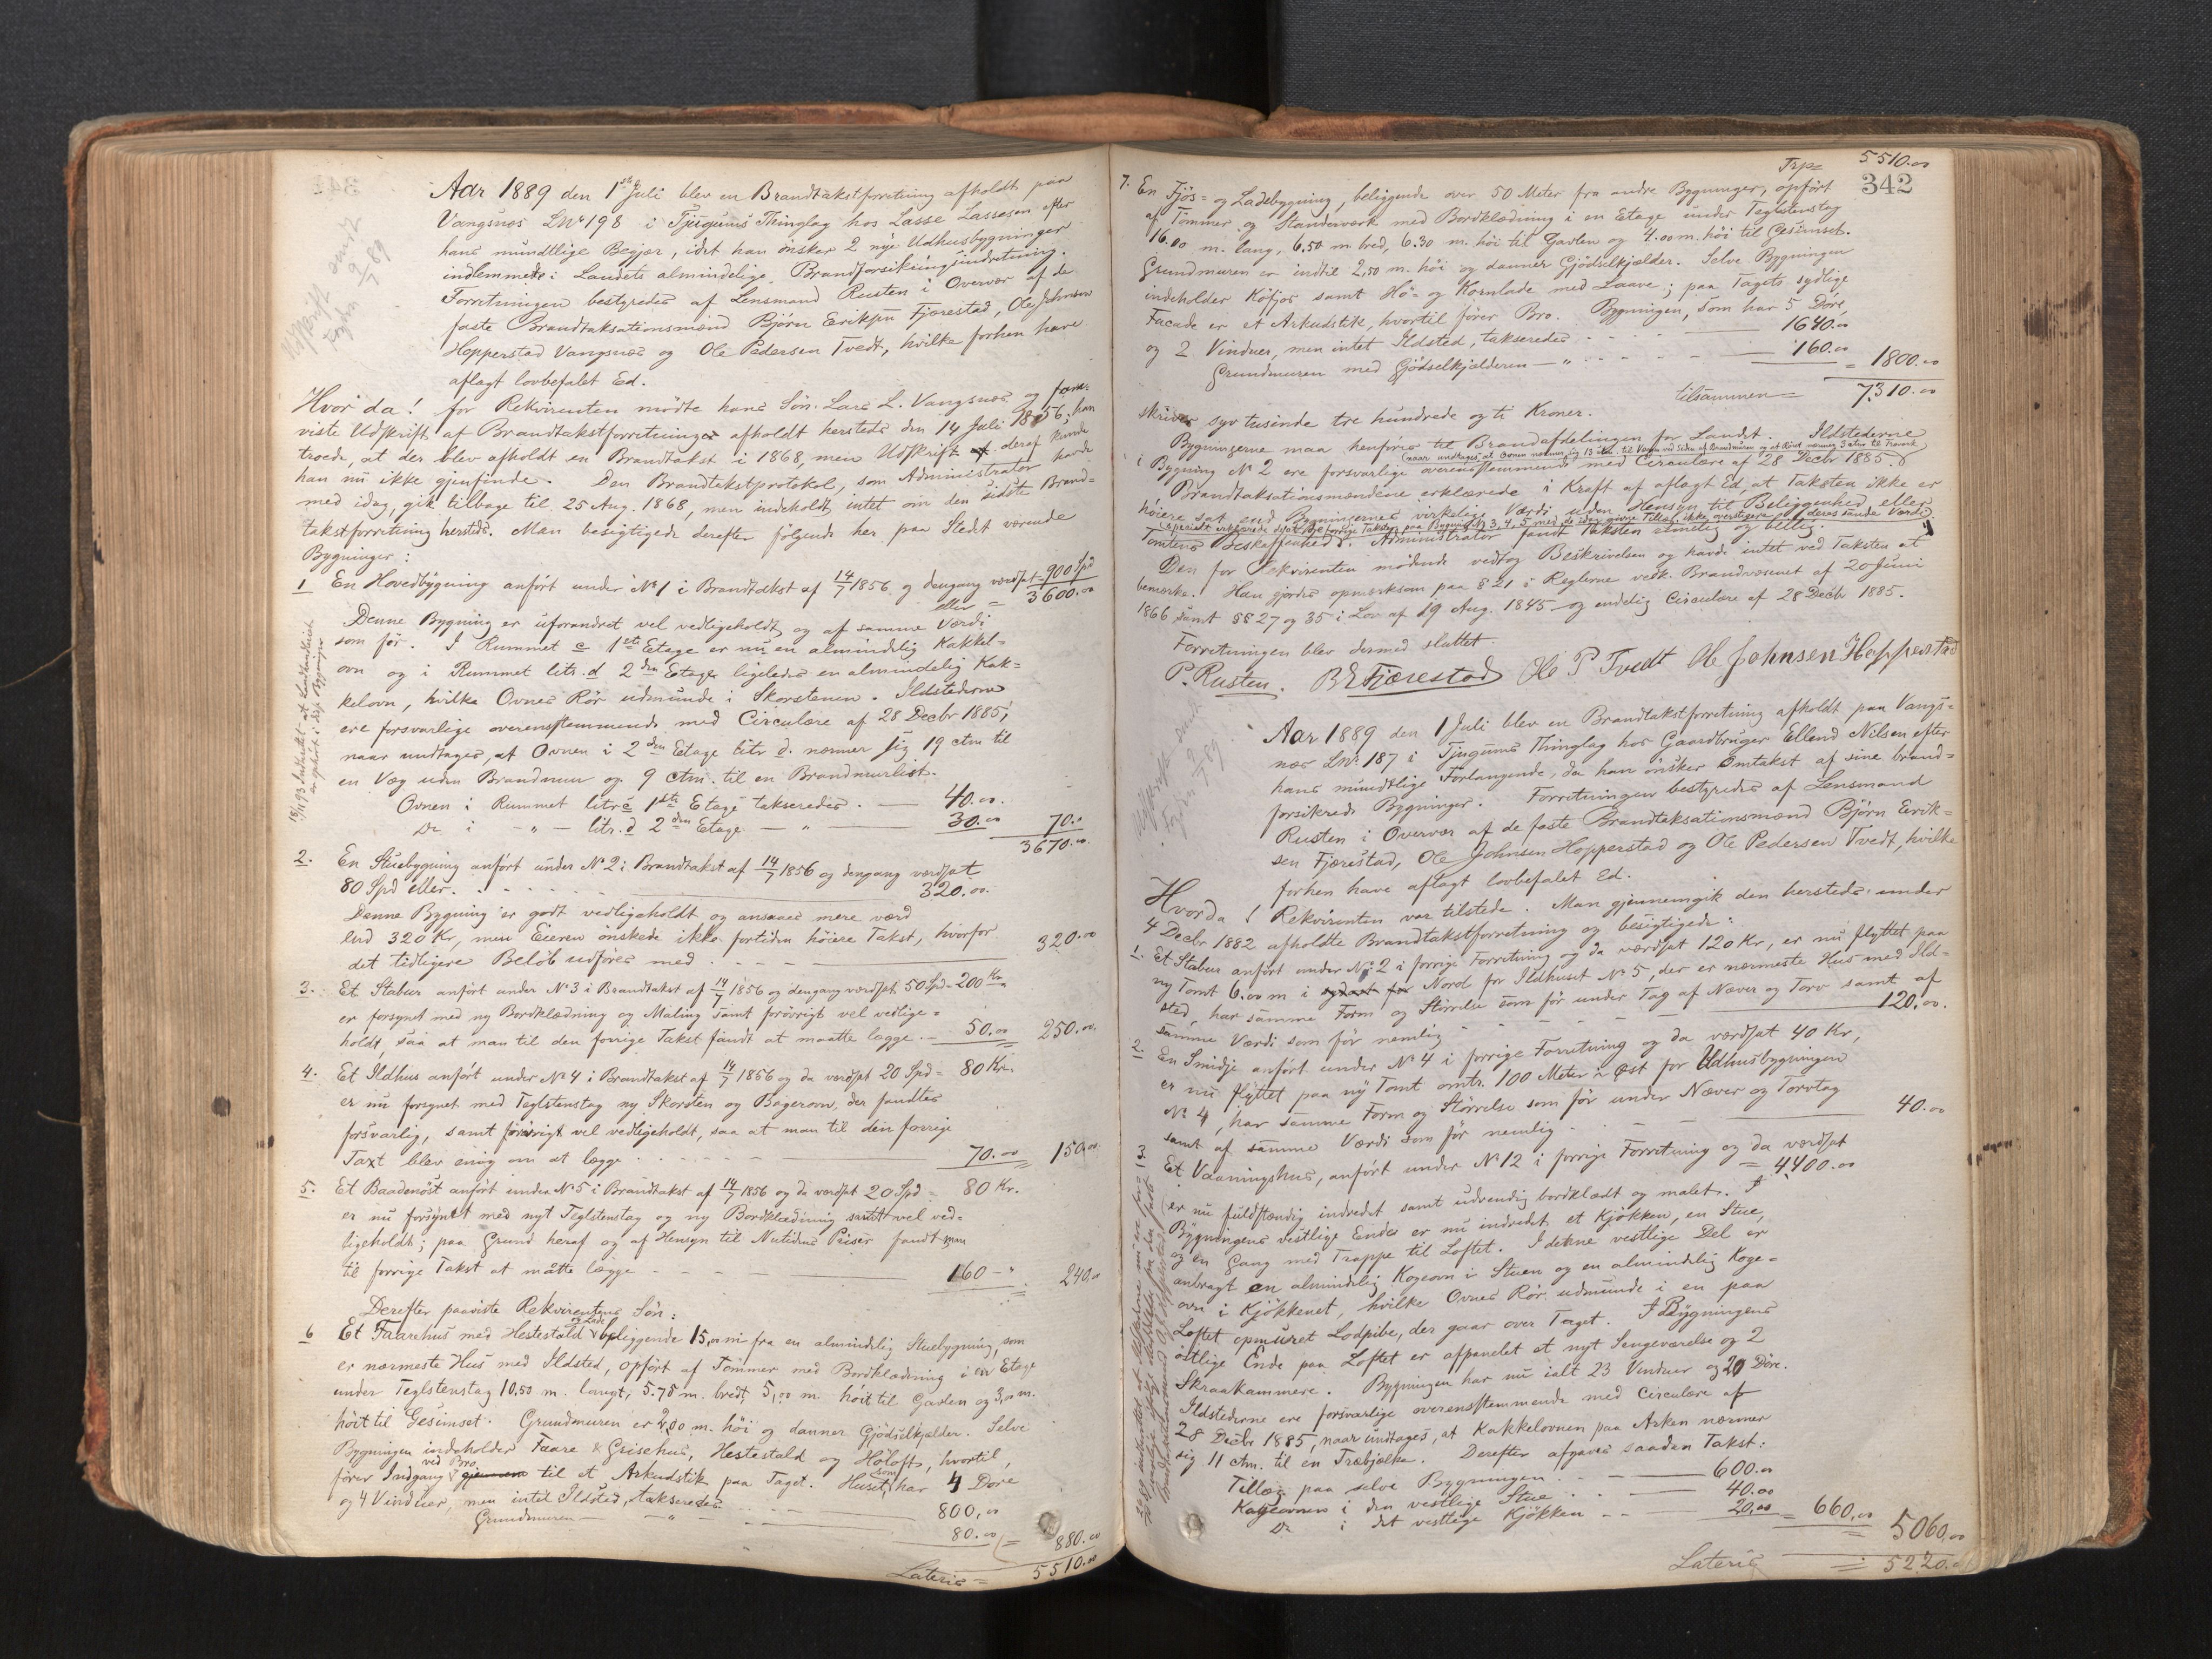 Aar 1889 den 1ste Juli blev en Brandtakstforretning afholdt paa
Vangsnæs LNo 198 i Tjugums Thinglag hos Lasse Lassesen efter
hans mundtlige Begjær, idet han ønsker 2 nye Udhusbygninger
indlemmede i Landets almindelige Brandforsikringsindretning.
Forretningen bestyredes af Lensmand Rusten i Overvær af de
faste Brandtaksationsmænd Björn Eriksen Fjærestad, Ole Johnsen
Hopperstad Vangsnæs og Ole Pedersen Tvedt, hvilke forhen have
aflagt lovbefalet Ed.
Udskrift sendt
Fogden 9/7 89
Hvor da! for Rekvirenten mödte hans Sön Lars L. Vangsnæs og frem-
viste Udskrift af Brandtakstforretninge afholdt hersteds den 14 Juli 1856. han
troede, at der blev afholdt en Brandtakst i 1868, men Udskrift deraf kunde
han nu ikke gjenfinde. Den Brandtakstprotokol, som Administrator havde
med idag, gik tilbage til 25 Aug. 1868, men indeholdt intet om den sidste Brand-
takstforretning hersteds. Man besigtigede derefter følgende her paa Stedet værende
Bygninger:
1 En Hovedbygning anfört under No 1 i Brandtakst af 14/7 1856 og dengang værdsat 900 Spd
eller = 3600.00
Denne Bygning er uforandret vel vedligeholdt og af samme Værdi
som för. I Rummet c 1ste Etage er nu en almindelig Kakkel-
ovn og i Rummet litr. d 2den Etage ligeledes en almindelig Kak-
kelovn, hvilke Ovnes Rör udmunde i Skorstenen. Ildstederne
ere forsvarlige overensstemmende med Circulære af 28 Decbr 1885,
naar undtages, at Ovnen i 2den Etage litr d. nærmer sig 19 ctm til
en Væg uden Brandmur og 9 ctm. til en Brandmurlist.
Ovnen i Rummet litr c 1ste Etage takseredes . — 40.00.
Do i - " - litr. d 2den Etage — " — 30.00 70.00
3670.00.
2. En Stuebygning anfört under No 2 i Brandtakst af 14/7 1856 og dengang værdsat
80 Spd eller. . . . . 320.00.
Denne Bygning er godt vedligeholdt og ansees mere værd
end 320 Kr, men Eieren önskede ikke fortiden höiere Takst, hvorfor
det tidligere Belöb udföres med . . . . 320.00
3. Et Stabur anfört under No 3 i Brandtakst af 14/7 1856 og dengang værdsat 50 Spd = 200 Kr
er forsynet med ny Bordklædning og Maling samt forövrigt vel vedlige-
holdt, saa at man til den forrige Takst fandt at maatte lægge . — 50.00 250.00.
4. Et Ildhus anfört under No 4 i Brandtakst af 14/7 1856 og da værdsat 20 Spd = 80 Kr.
er nu forsynet med Teglstenstag ny Skorsten og Bagerovn, der fandtes
forsvarlig, samt forövrigt vel vedligeholdt, saa at man til den forrige
Taxt blev enig om at lægge . . . . . 70.00 150.00
5. Et Baadenöst anfört under No 5 i Brandtakst af 14/7 1856 og da værdsat 20 Spd = 80 Kr.
er nu forsynet med nyt Teglstenstag og ny Bordklædning samt vel ved-
ligeholdt; paa Grund heraf og af Hensyn til Nutidens Priser fandt man
til forrige Takst at måtte lægge — — — 160 — " 240.00
Derefter paaviste Rekvirentens Sön:
og Lade
6 Et Faarehus med Hestestald beliggende 15,00 m fra en almindelig Stuebygning, som
er nærmeste Hus med Ildsted, opfört af Tömmer med Bordklædning i en Etage
under Teglstenstag 10,50 m. langt, 5.75 m. bredt, 5,00 m. höit til Gavlen og 3,00 m.
höit til Gesimset. Grundmuren er 2,00 m. höi og danner Gjödselkjelder. Selve
Bygningen indeholder Faare & Grisehus, Hestestald og Höloft, hvortil
ved Bro som
förer Indgang gjennem til et Arkudstik paa Taget. Huset, har 4 Döre
og 4 Vinduer, men intet Ildsted, takseredes . . . 800,00
Grundmuren — " — . . 80.00 = 880.00
Lateris = 5510.00
Trp= 5510.00
342
7. En Fjös- og Ladebygning, beliggende over 50 Meter fra andre Bygninger, opfört
af Tömmer og Standerværk med Bordklædning i en Etage under Teglstenstag
16.00 m. lang, 6.50 m. bred, 6.30 m. höi til Gavlen og 4.00 m. höi til Gesimset.
Grundmuren er indtil 2,50 m. höi og danner Gjödselkjælder. Selve Bygningen
indeholder Köfjös samt Hö- og Kornlade med Laave; paa Tagets sydlige
Facade er et Arkudstik, hvortil förer Bro. Bygningen, som har 5 Döre,
og 2 Vinduer, men intet Ildsted, takseredes . . . 1640.00
Grundmuren med Gjödselkjælderen — " . . . . 160.00 = 1800.00
tilsammen = 7310.00
skriver syv tusinde tre hundrede og ti Kroner.
Bygningerne maa henföres til Brandafdelingen for Landet. Ildstederne
i Bygning No 2 ere forsvarlige overensstemmende med Circulære af 28 Decbr 1885.
Brandtaksationsmændene erklærede i Kraft af aflagt Ed, at Taksten ikke er
höiere sat end Bygningernes virkelige Værdi uden Hensyn til Beliggenhed eller
Tomtens Beskaffenhed. Administrator fandt Taksten rimelig og billig.
Den for Rekvirenten mödende vedtog Beskrivelsen og havde intet ved Taksten at
bemærke. Han gjordes opmærksom paa § 21 i Reglerne vedk. Brandvæsenet af 20 Juni
1866 samt §§ 27 og 35 i Lov af 19 Aug. 1845 og endelig Circulære af 28 Decbr 1885.
Forretningen blev dermed sluttet.
P. Rusten. B E Fjærestad Ole P Tvedt Ole Johnsen Hopperstad
Aar 1889 den 1 Juli blev en Brandtakstforretning afholdt paa Vangs-
næs LNo 187 i Tjugums Thinglag hos Gaardbruger Ellend Nilsen efter
hans mundtlige Forlangende, da han önsker Omtakst af sine brand-
forsikrede Bygninger. Forretningen bestyredes af Lensmand
Rusten i Overvær af de faste Brandtaksationsmænd Björn Eerik-
sen Fjærestad, Ole Johnsen Hopperstad og Ole Pedersen Tvedt, hvilke
forhen have aflagt lovbefalet Ed.
Hvorda! Rekvirenten var tilstede. Man gjennemgik den hersteds under
4 Decbr 1882 afholdte Brandtakstforretning og besigtigede:
1. Et Stabur anfört under No 2 i forrige Forretning og da værdsat 120 Kr, er nu flyttet paa
ny Tomt 6.00 m i Nord for Ildhuset No 5, der er nærmeste Hus med Ild-
sted, har samme Form og Störrelse som för under Tag af Næver og Torv samt af
samme Værdi som för nemlig — — — 120,00.
2. En Smidje anfört under No 4 i forrige Forretning og da værdsat 40 Kr,
er nu flyttet paa ny Tomt omtr. 100 Meter i Öst for Udhusbygningen
No 4, har samme Form og Störrelse som för under Næver og Torvtag
samt af samme Værdi som för nemlig . — — 40.00
3. Et Vaaningshus, anfört under No 12 i forrige Forretning og da værdsat = 4400.00
er nu fuldstændig indredet samt udvendig bordklædt og malet. I
Bygningens vestlige Ende er nu indredet et Kjökken, en Stue,
og en Gang med Trappe til Loftet. I denne vestlige Del er
anbragt en almindelig Kogeovn i Stuen og en almindelig Koge-
ovn i Kjökkenet, hvilke Ovnes Rör udmunde i en paa
Loftet opmuret Lodpibe, der gaar over Taget. I Bygningens
östlige Ende paa Loftet er afpanelet et nyt Sengeværelse og 2
Skraakammere. Bygningen har nu ialt 23 Vinduer og 20 Döre.
Ildstederne ere forsvarlige overensstemmende med Circulære af
28 Decbr 1885, naar undtages, at Kakkelovnen paa Arken nærmer
sig 11 ctm. til en Træbjælke. Derefter afgaves saadan Takst:
Tillæg paa selve Bygningen . . . — 600.00
Kogeovnen i den vestlige Stue . . — 40.00
Do i det vestlige Kjökken - - — 20,00 = 660,00 5060,00
Lateris = 5220.00